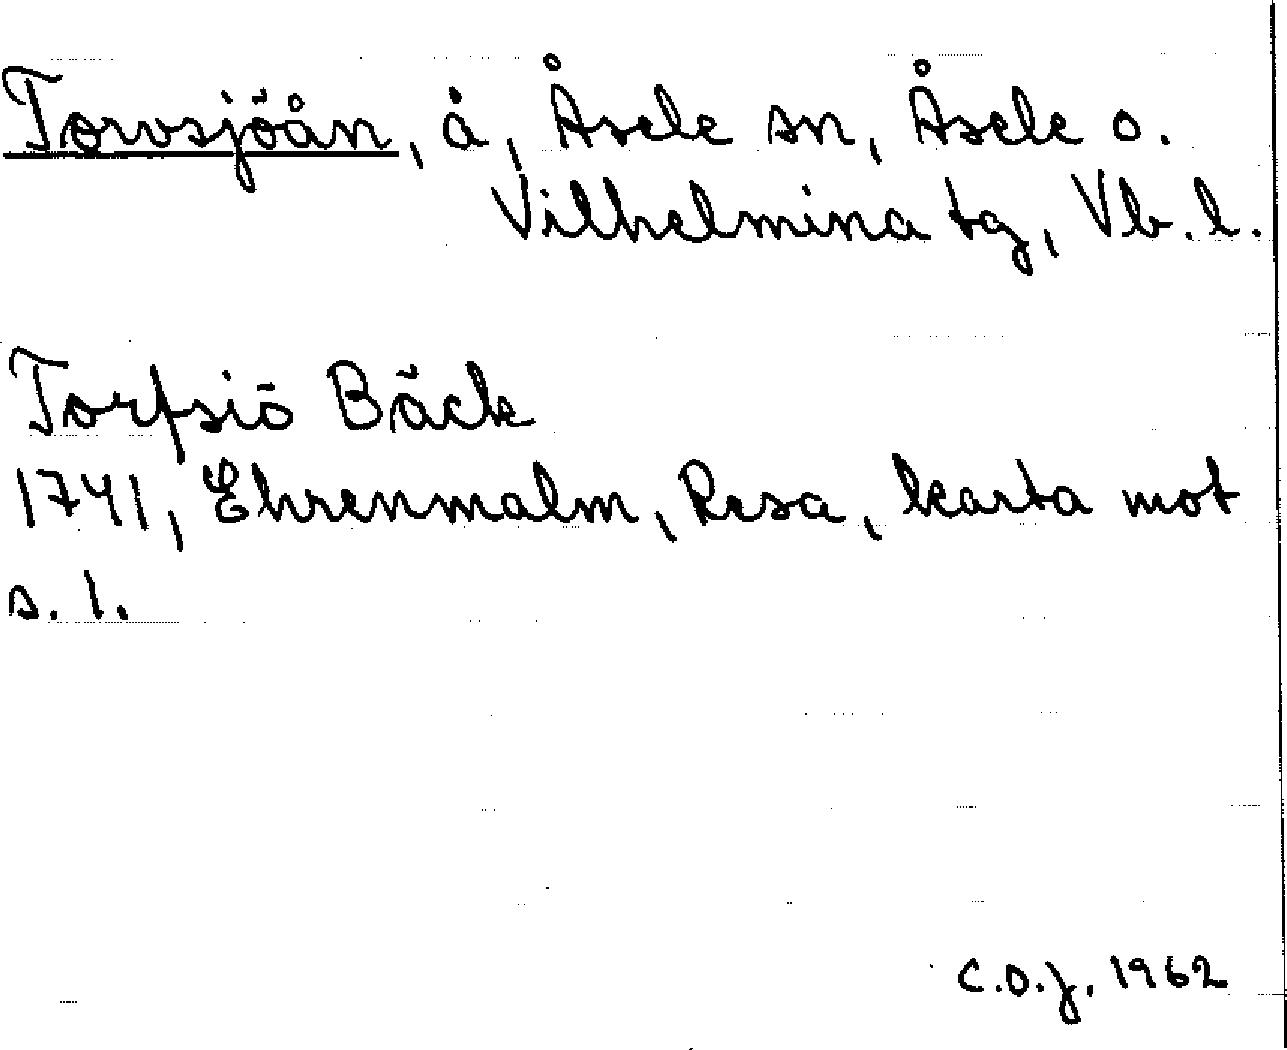 Torvsjöån, å, Åsele sn, Åsele o.
Vilhelmina tg, Vb. l.
Torfsiö Bäck
1741, Ehrenmalm, Resa, karta mot
s. 1.
C.O.J. 1962